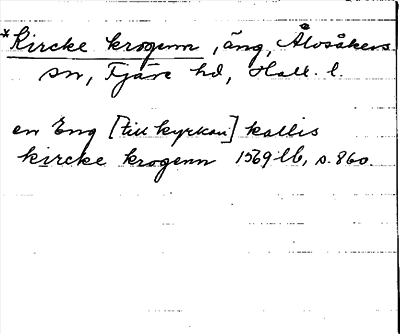 *Kircke krogenn, äng, Älvsåkers
sn, Fjäre hd, Hall. l.
en Eng [till kyrkan] kallis
kircke krogenn 1569 lb, s. 860.